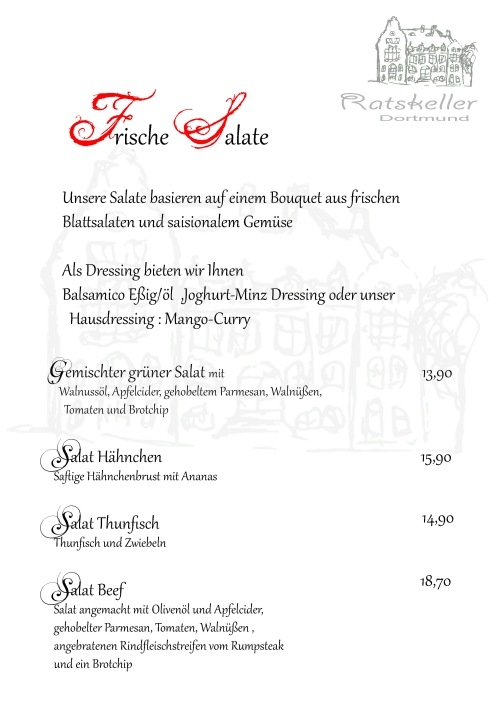 Ratskeller
Dortmund
Frische Salate
Unsere Salate basieren auf einem Bouquet aus frischen
Blattsalaten und saisionalem Gemüse
Als Dressing bieten wir Ihnen
Balsamico Eßig/öl ,Joghurt-Minz Dressing oder unser
Hausdressing : Mango-Curry
Gemischter grüner Salat mit 13,90
Walnussöl, Apfelcider, gehobeltem Parmesan, Walnüßen,
Tomaten und Brotchip
Salat Hähnchen 15,90
Saftige Hähnchenbrust mit Ananas
Salat Thunfisch 14,90
Thunfisch und Zwiebeln
Salat Beef 18,70
Salat angemacht mit Olivenöl und Apfelcider,
gehobelter Parmesan, Tomaten, Walnüßen ,
angebratenen Rindfleischstreifen vom Rumpsteak
und ein Brotchip